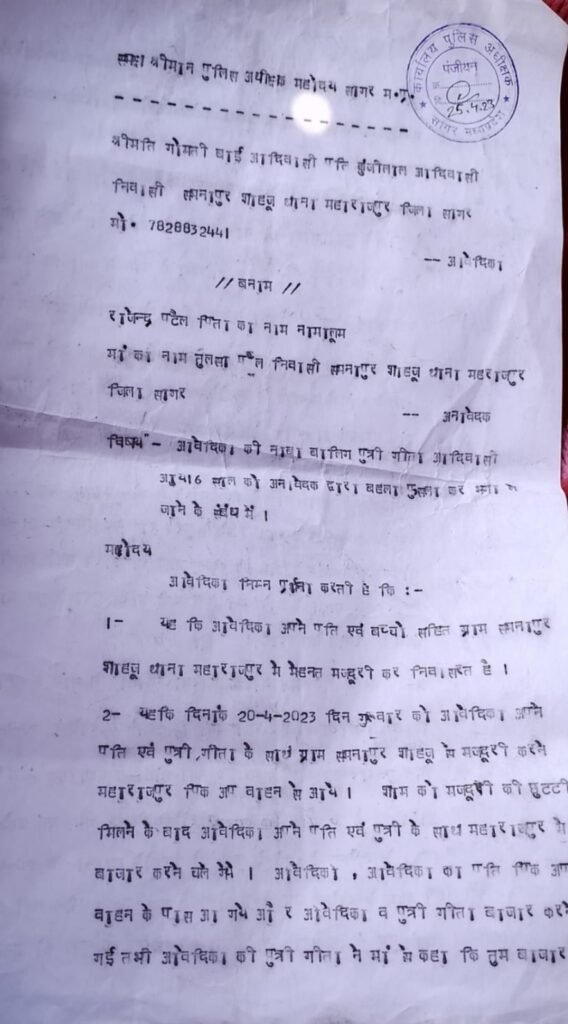 समक्ष श्रीमान पुलिस अधीक्षक महोदय सागर म.प्र.
कार्यालय पुलिस अधीक्षक
पंजीयन
क्र.
दि. 25.4.23
★ सागर मध्यप्रदेश ★
- - - - - - - - - - - - - - - -
श्रीमति गोमती बाई आदिवासी पति कुंजीलाल आदिवासी
निवासी समनापुर शाहजू थाना महाराजपुर जिला सागर
मो. 7828832441
-- आवेदिका
// बनाम //
राजेन्द्र पटैल पिता का नाम नामालूम
मां का नाम तुलसा पटैल निवासी समनापुर शाहजू थाना महाराजपुर
जिला सागर
-- अनावेदक
विषय - आवेदिका की नावा बालिग पुत्री गीता आदिवासी
आयु 16 साल को अनावेदक द्वारा बहला फुसला कर भगा ले
जाने के संबंध में ।
महोदय
आवेदिका निम्न प्रार्थना करती है कि :-
1- यह कि आवेदिका अपने पति एवं बच्चो सहित ग्राम समनापुर
शाहजू थाना महाराजपुर मे मेहनत मजदूरी कर निवासरत है ।
2- यहकि दिनांक 20-4-2023 दिन गुरूवार को आवेदिका अपने
पति एवं पुत्री गीता के साथ ग्राम समनापुर शाहजू से मजदूरी करने
महाराजपुर पिक अप वाहन से आये । शाम को मजदूरी की छुटटी
मिलने के बाद आवेदिका अपने पति एवं पुत्री के साथ महाराजपुर मे
बाजार करने चले गये । आवेदिका , आवेदिका का पति पिक अप
वाहन के पास आ गये और आवेदिका व पुत्री गीता बाजार करने
गई तभी आवेदिका की पुत्री गीता ने मां से कहा कि तुम बाजार